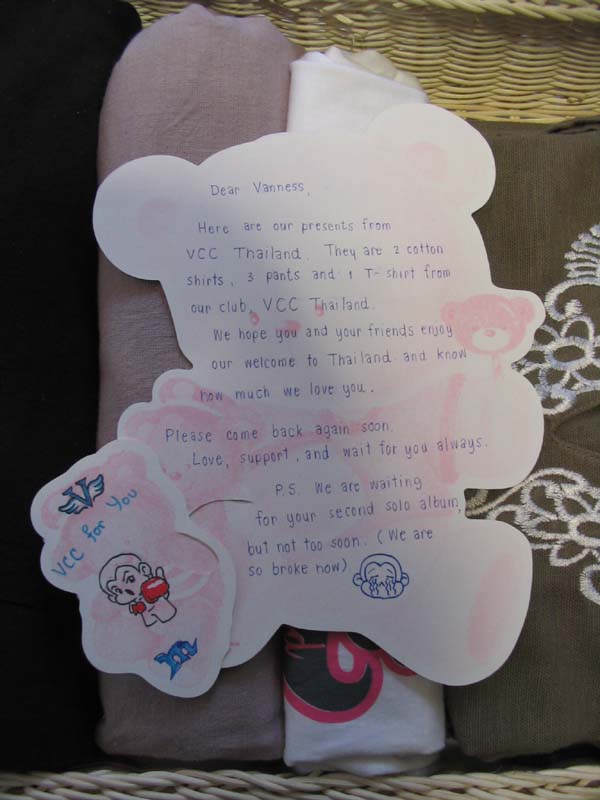 Dear Vanness,
Here are our presents from
VCC Thailand. They are 2 cotton
shirts, 3 pants and 1 T-shirt from
our club, VCC Thailand.
We hope you and your friends enjoy
our welcome to Thailand and know
how much we love you.
Please come back again soon.
Love, support, and wait for you always.
P.S. We are waiting
for your second solo album,
but not too soon. (We are
so broke now)
V
VCC for You